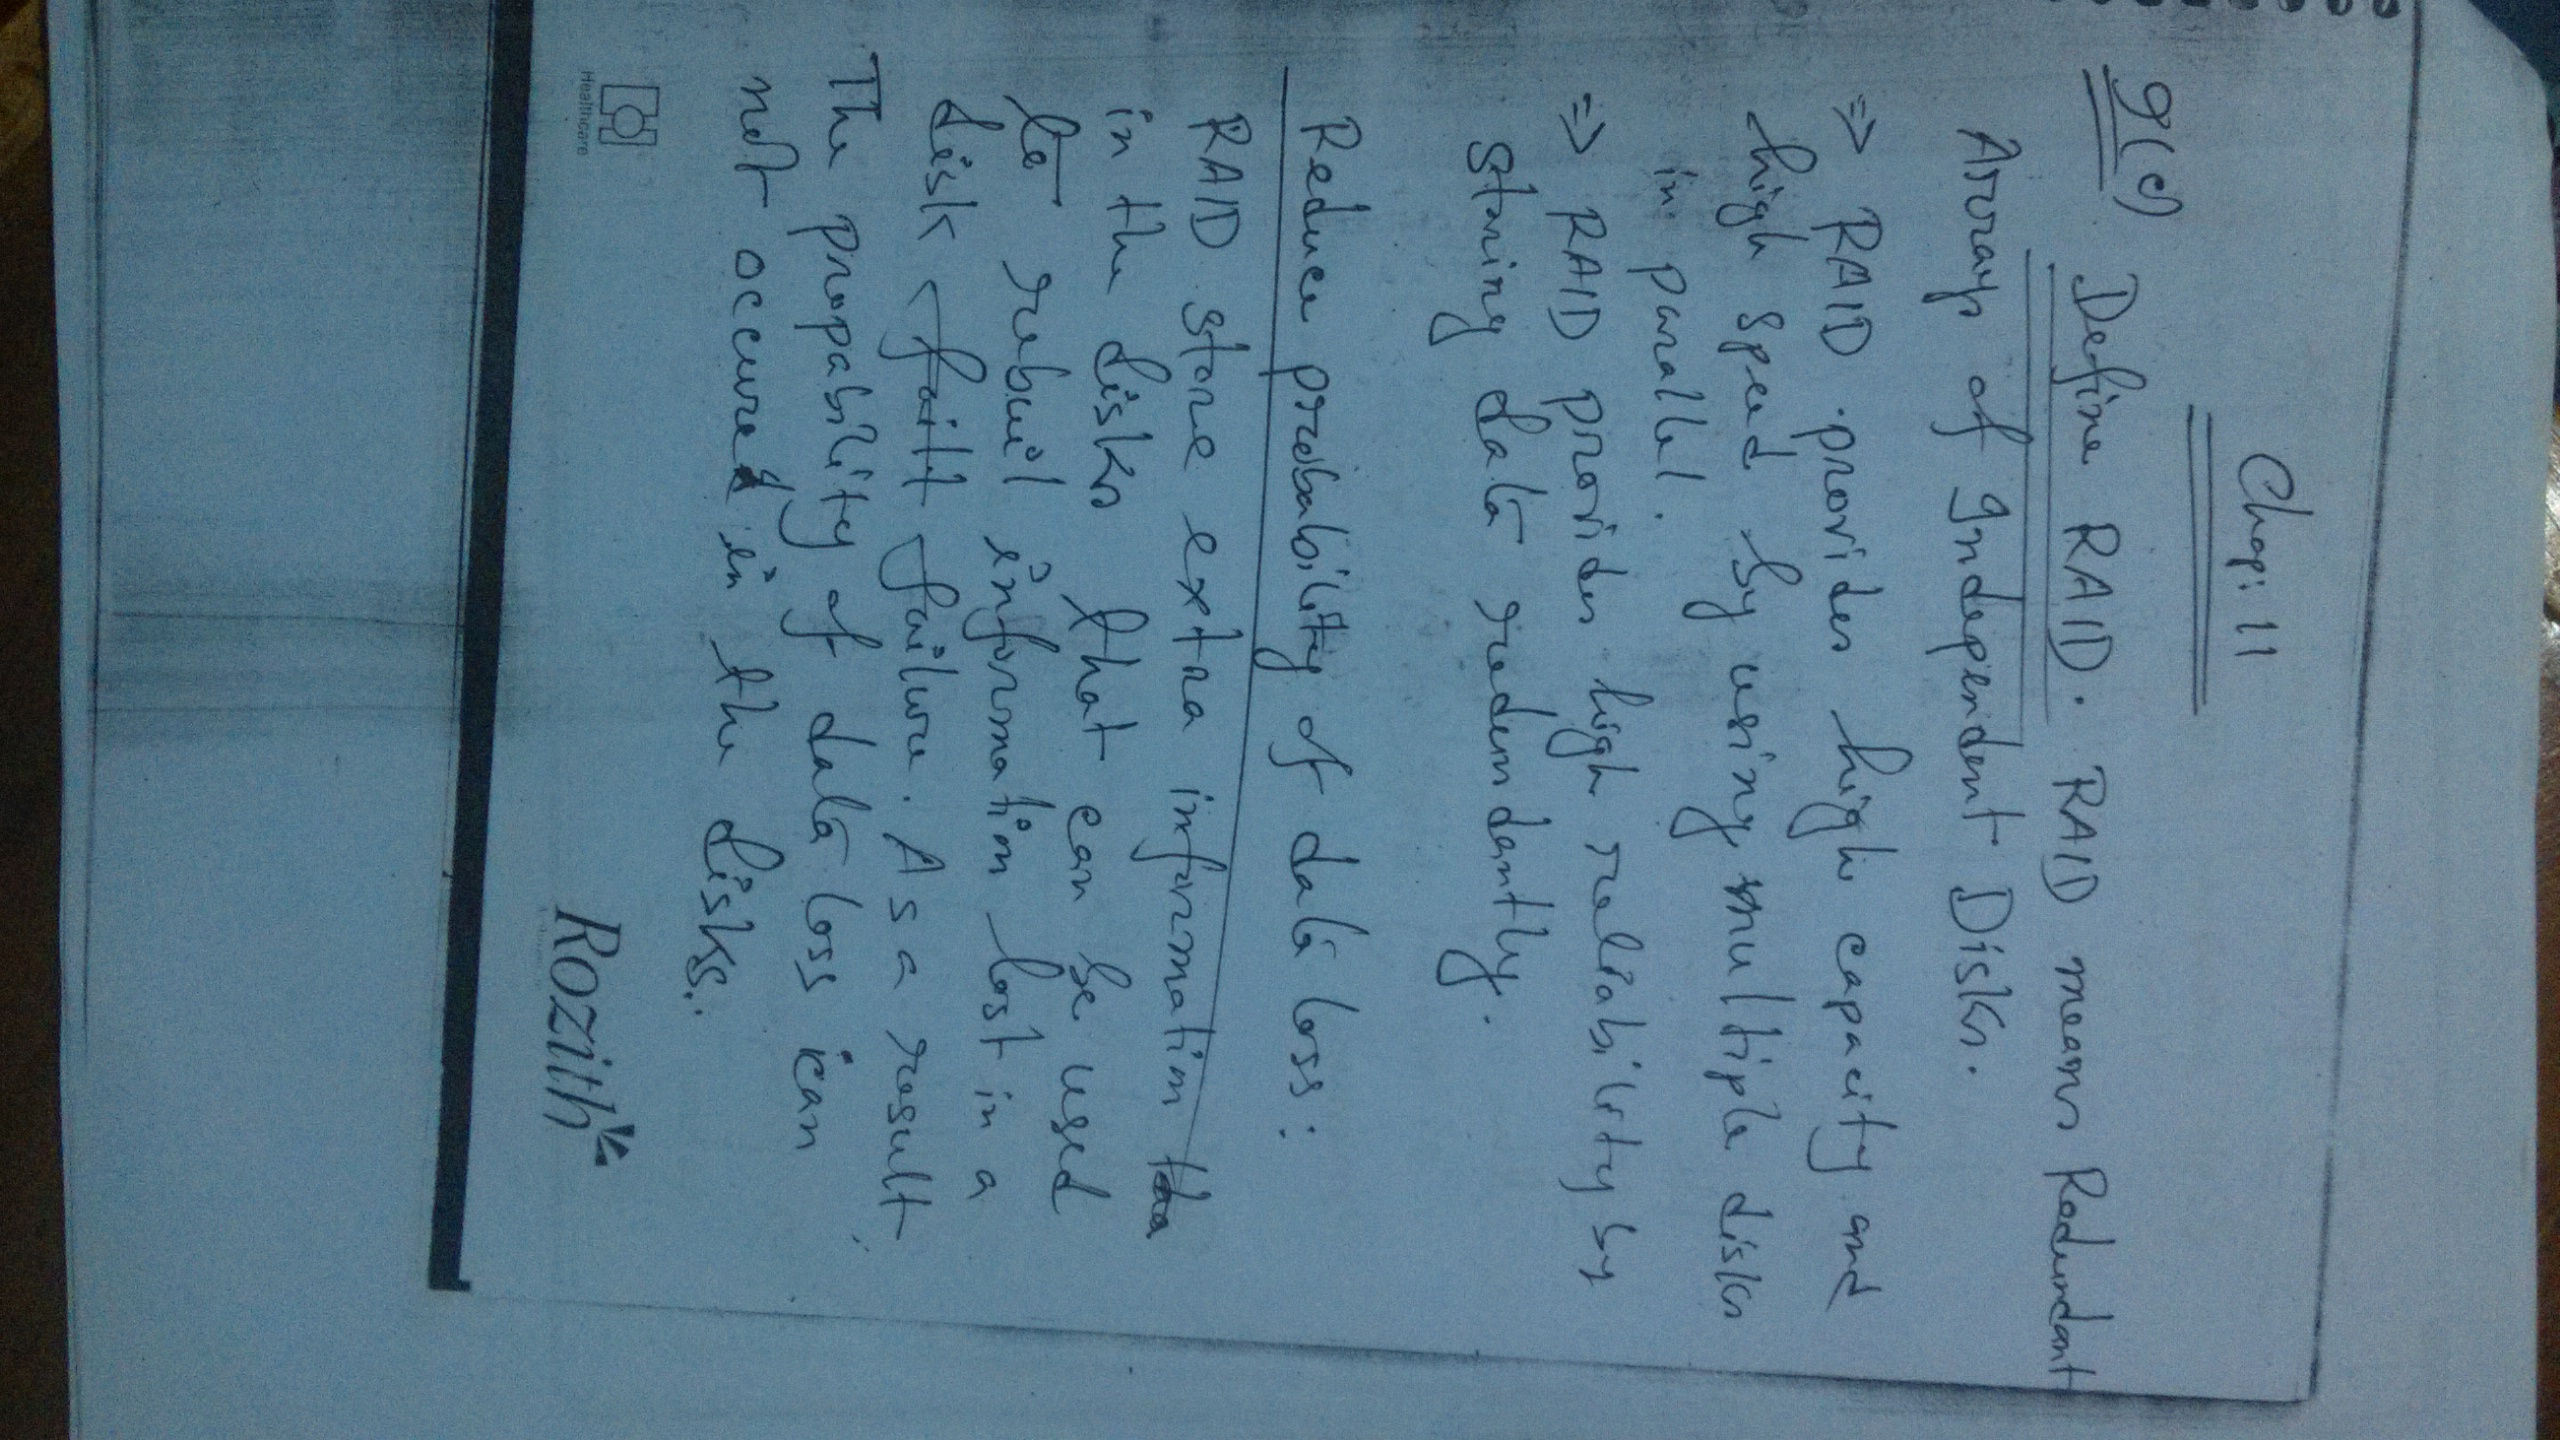 Chap: 11
9(c) Define RAID. RAID means Redundant
Arrays of Independent Disks.
=> RAID provides high capacity and
high speed by using multiple disks
in parallel.
=> RAID provides high reliability by
storing data redundantly.
Reduce probability of data loss:
RAID store extra information
in the disks that can be used
to rebuil information lost in a
disk failure. As a result
The propability of data loss can
not occured in the disks.
Healthcare
Rozith